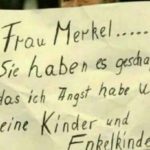 Frau Merkel.....
Sie haben es gescha
das ich Angst habe u
eine Kinder und
Enkelkinde